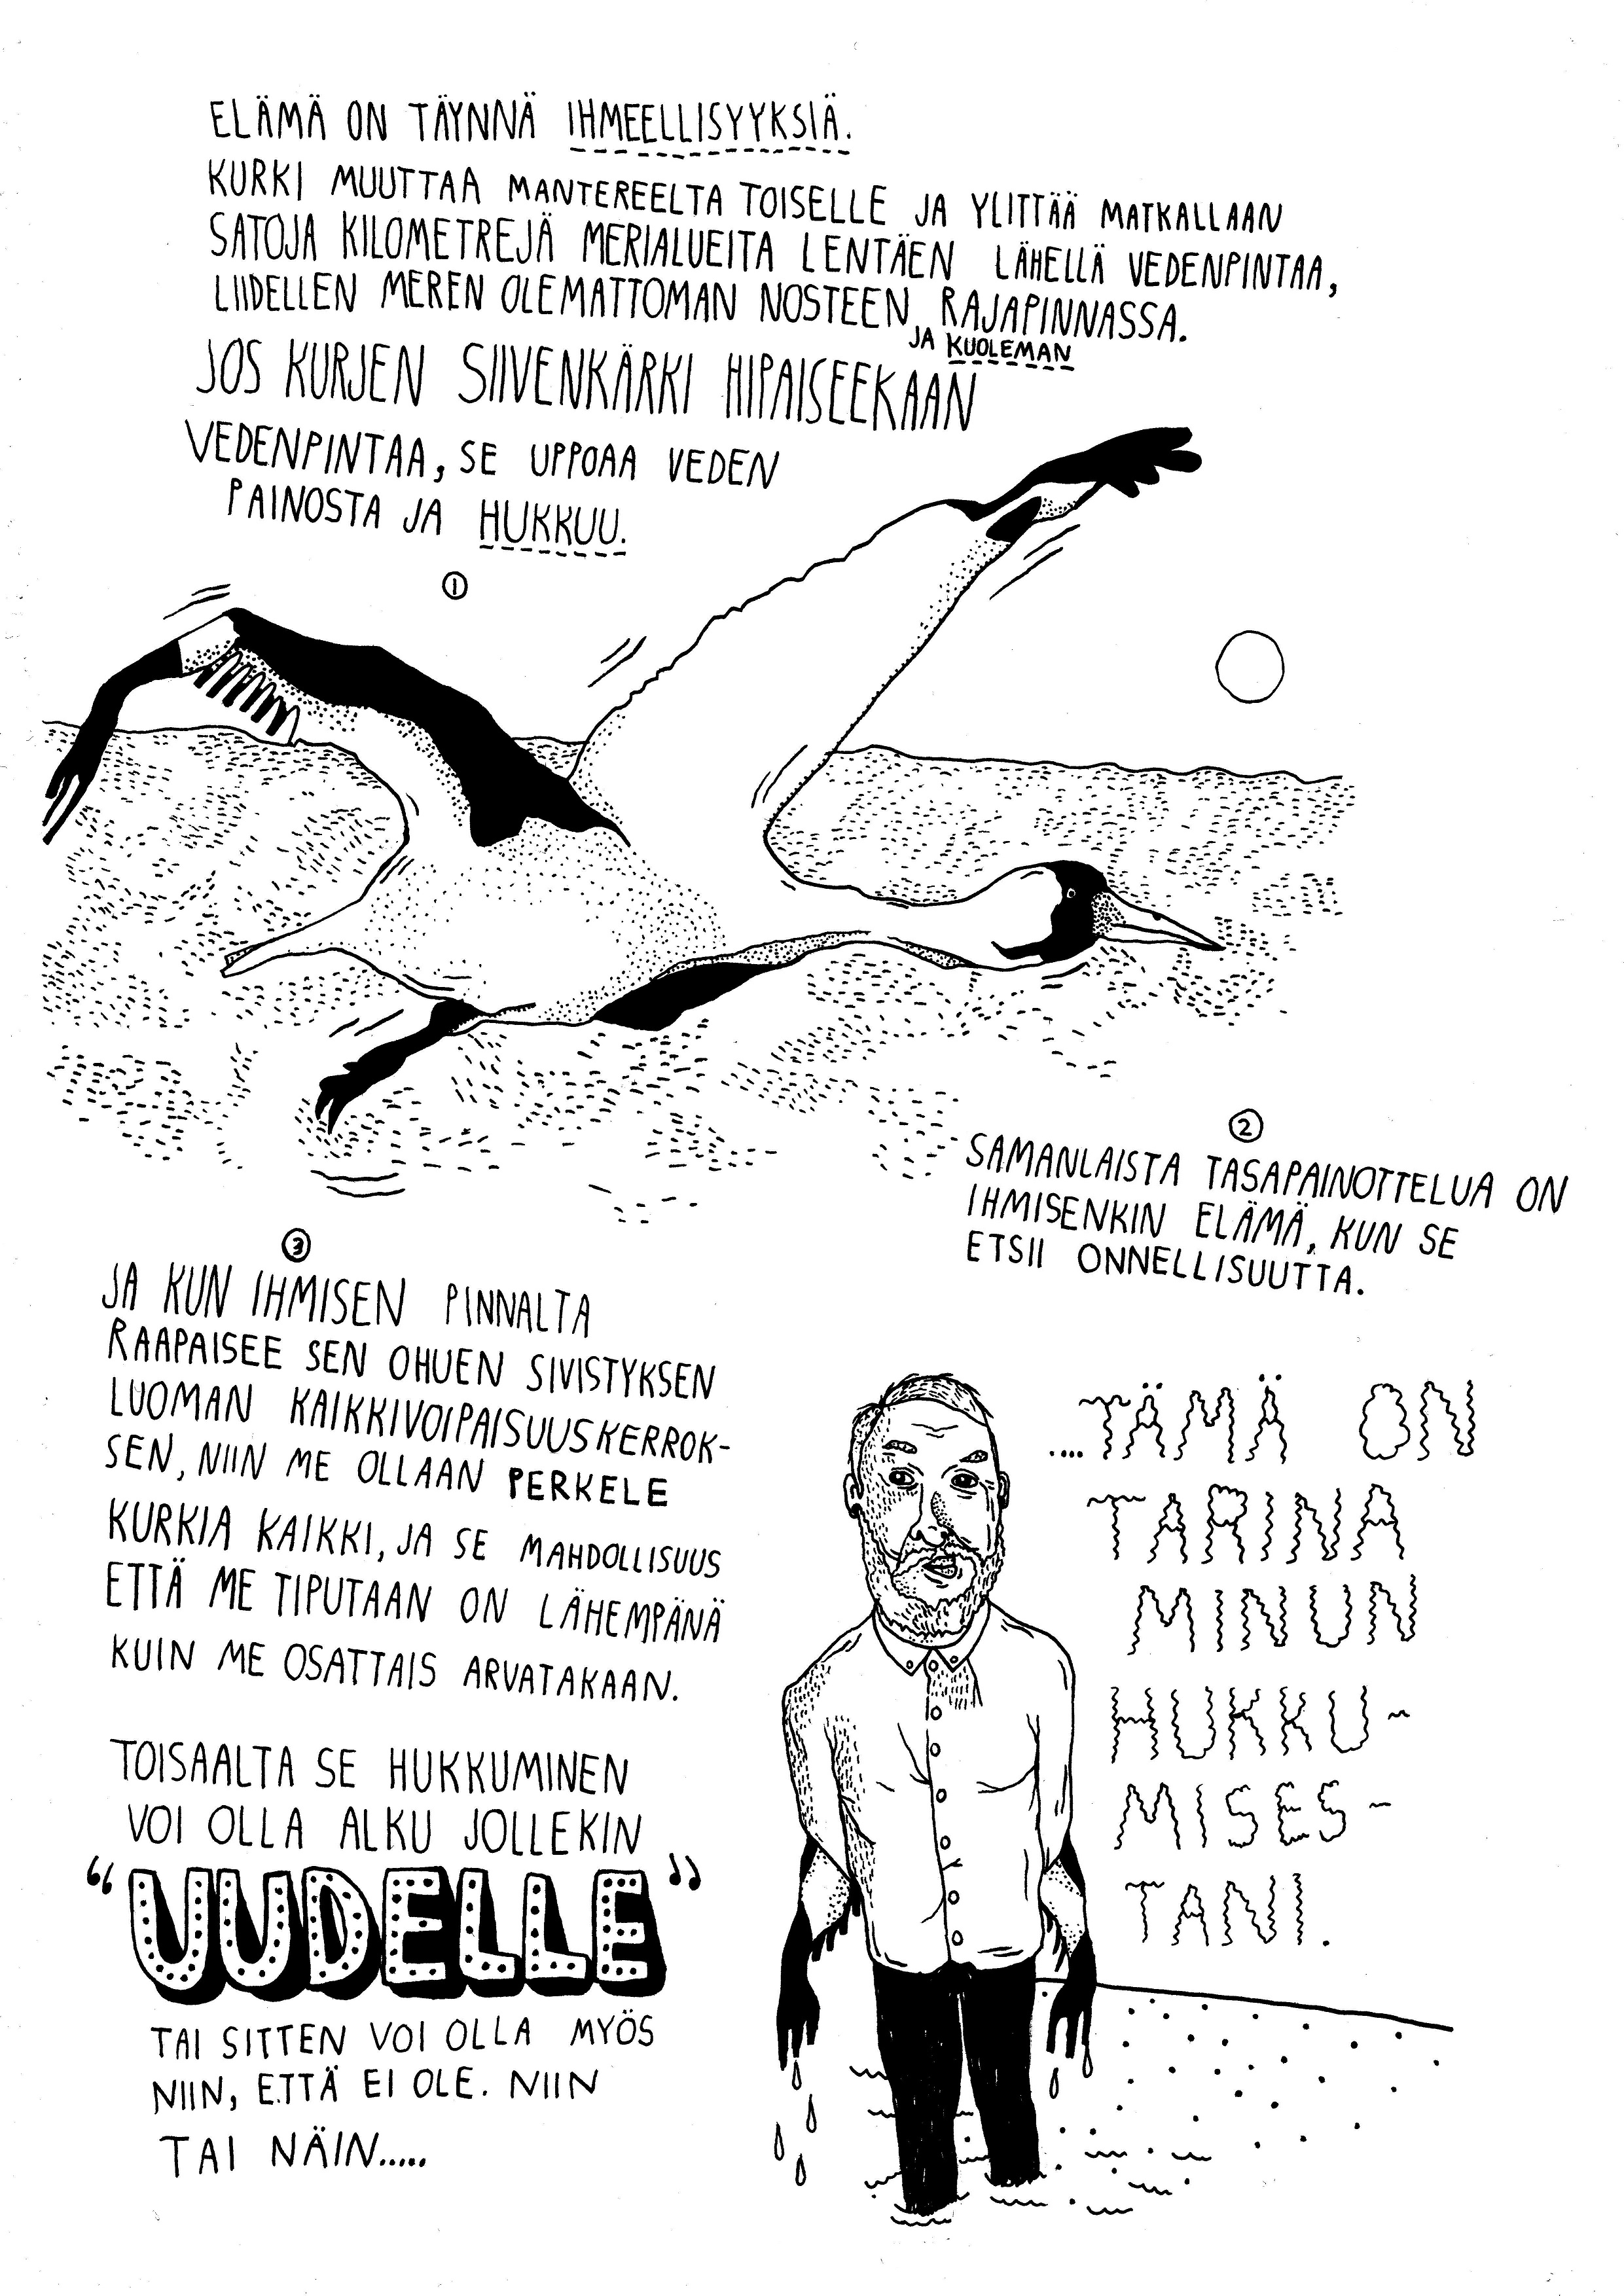 ELÄMÄ ON TÄYNNÄ IHMEELLISYYKSIÄ.
KURKI MUUTTAA MANTEREELTA TOISELLE JA YLITTÄÄ MATKALLAAN
SATOJA KILOMETREJÄ MERIALUEITA LENTÄEN LÄHELLÄ VEDENPINTAA,
LIIDELLEN MEREN OLEMATTOMAN NOSTEEN RAJAPINNASSA.
JA KUOLEMAN
JOS KURJEN SIIVENKÄRKI HIPAISEEKAAN
VEDENPINTAA, SE UPPOAA VEDEN
PAINOSTA JA HUKKUU.
1
2
SAMANLAISTA TASAPAINOTTELUA ON
IHMISENKIN ELÄMÄ, KUN SE
ETSII ONNELLISUUTTA.
3
JA KUN IHMISEN PINNALTA
RAAPAISEE SEN OHUEN SIVISTYKSEN
LUOMAN KAIKKIVOIPAISUUSKERROK-
SEN, NIIN ME OLLAAN PERKELE
KURKIA KAIKKI, JA SE MAHDOLLISUUS
ETTÄ ME TIPUTAAN ON LÄHEMPÄNÄ
KUIN ME OSATTAIS ARVATAKAAN.
TOISAALTA SE HUKKUMINEN
VOI OLLA ALKU JOLLEKIN
"UUDELLE"
TAI SITTEN VOI OLLA MYÖS
NIIN, ETTÄ EI OLE. NIIN
TAI NÄIN.....
....TÄMÄ ON
TARINA
MINUN
HUKKU-
MISES-
TANI.